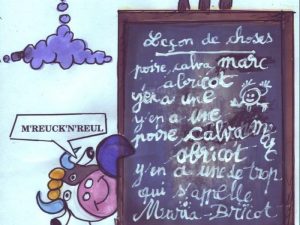 Leçon de choses
poire, calva marc
abricot
y en a une
y en a une
poire calva
abricot
y'en a une de trop
qui s'appelle
Maria-Bricot
M'REUCK'N'REUL